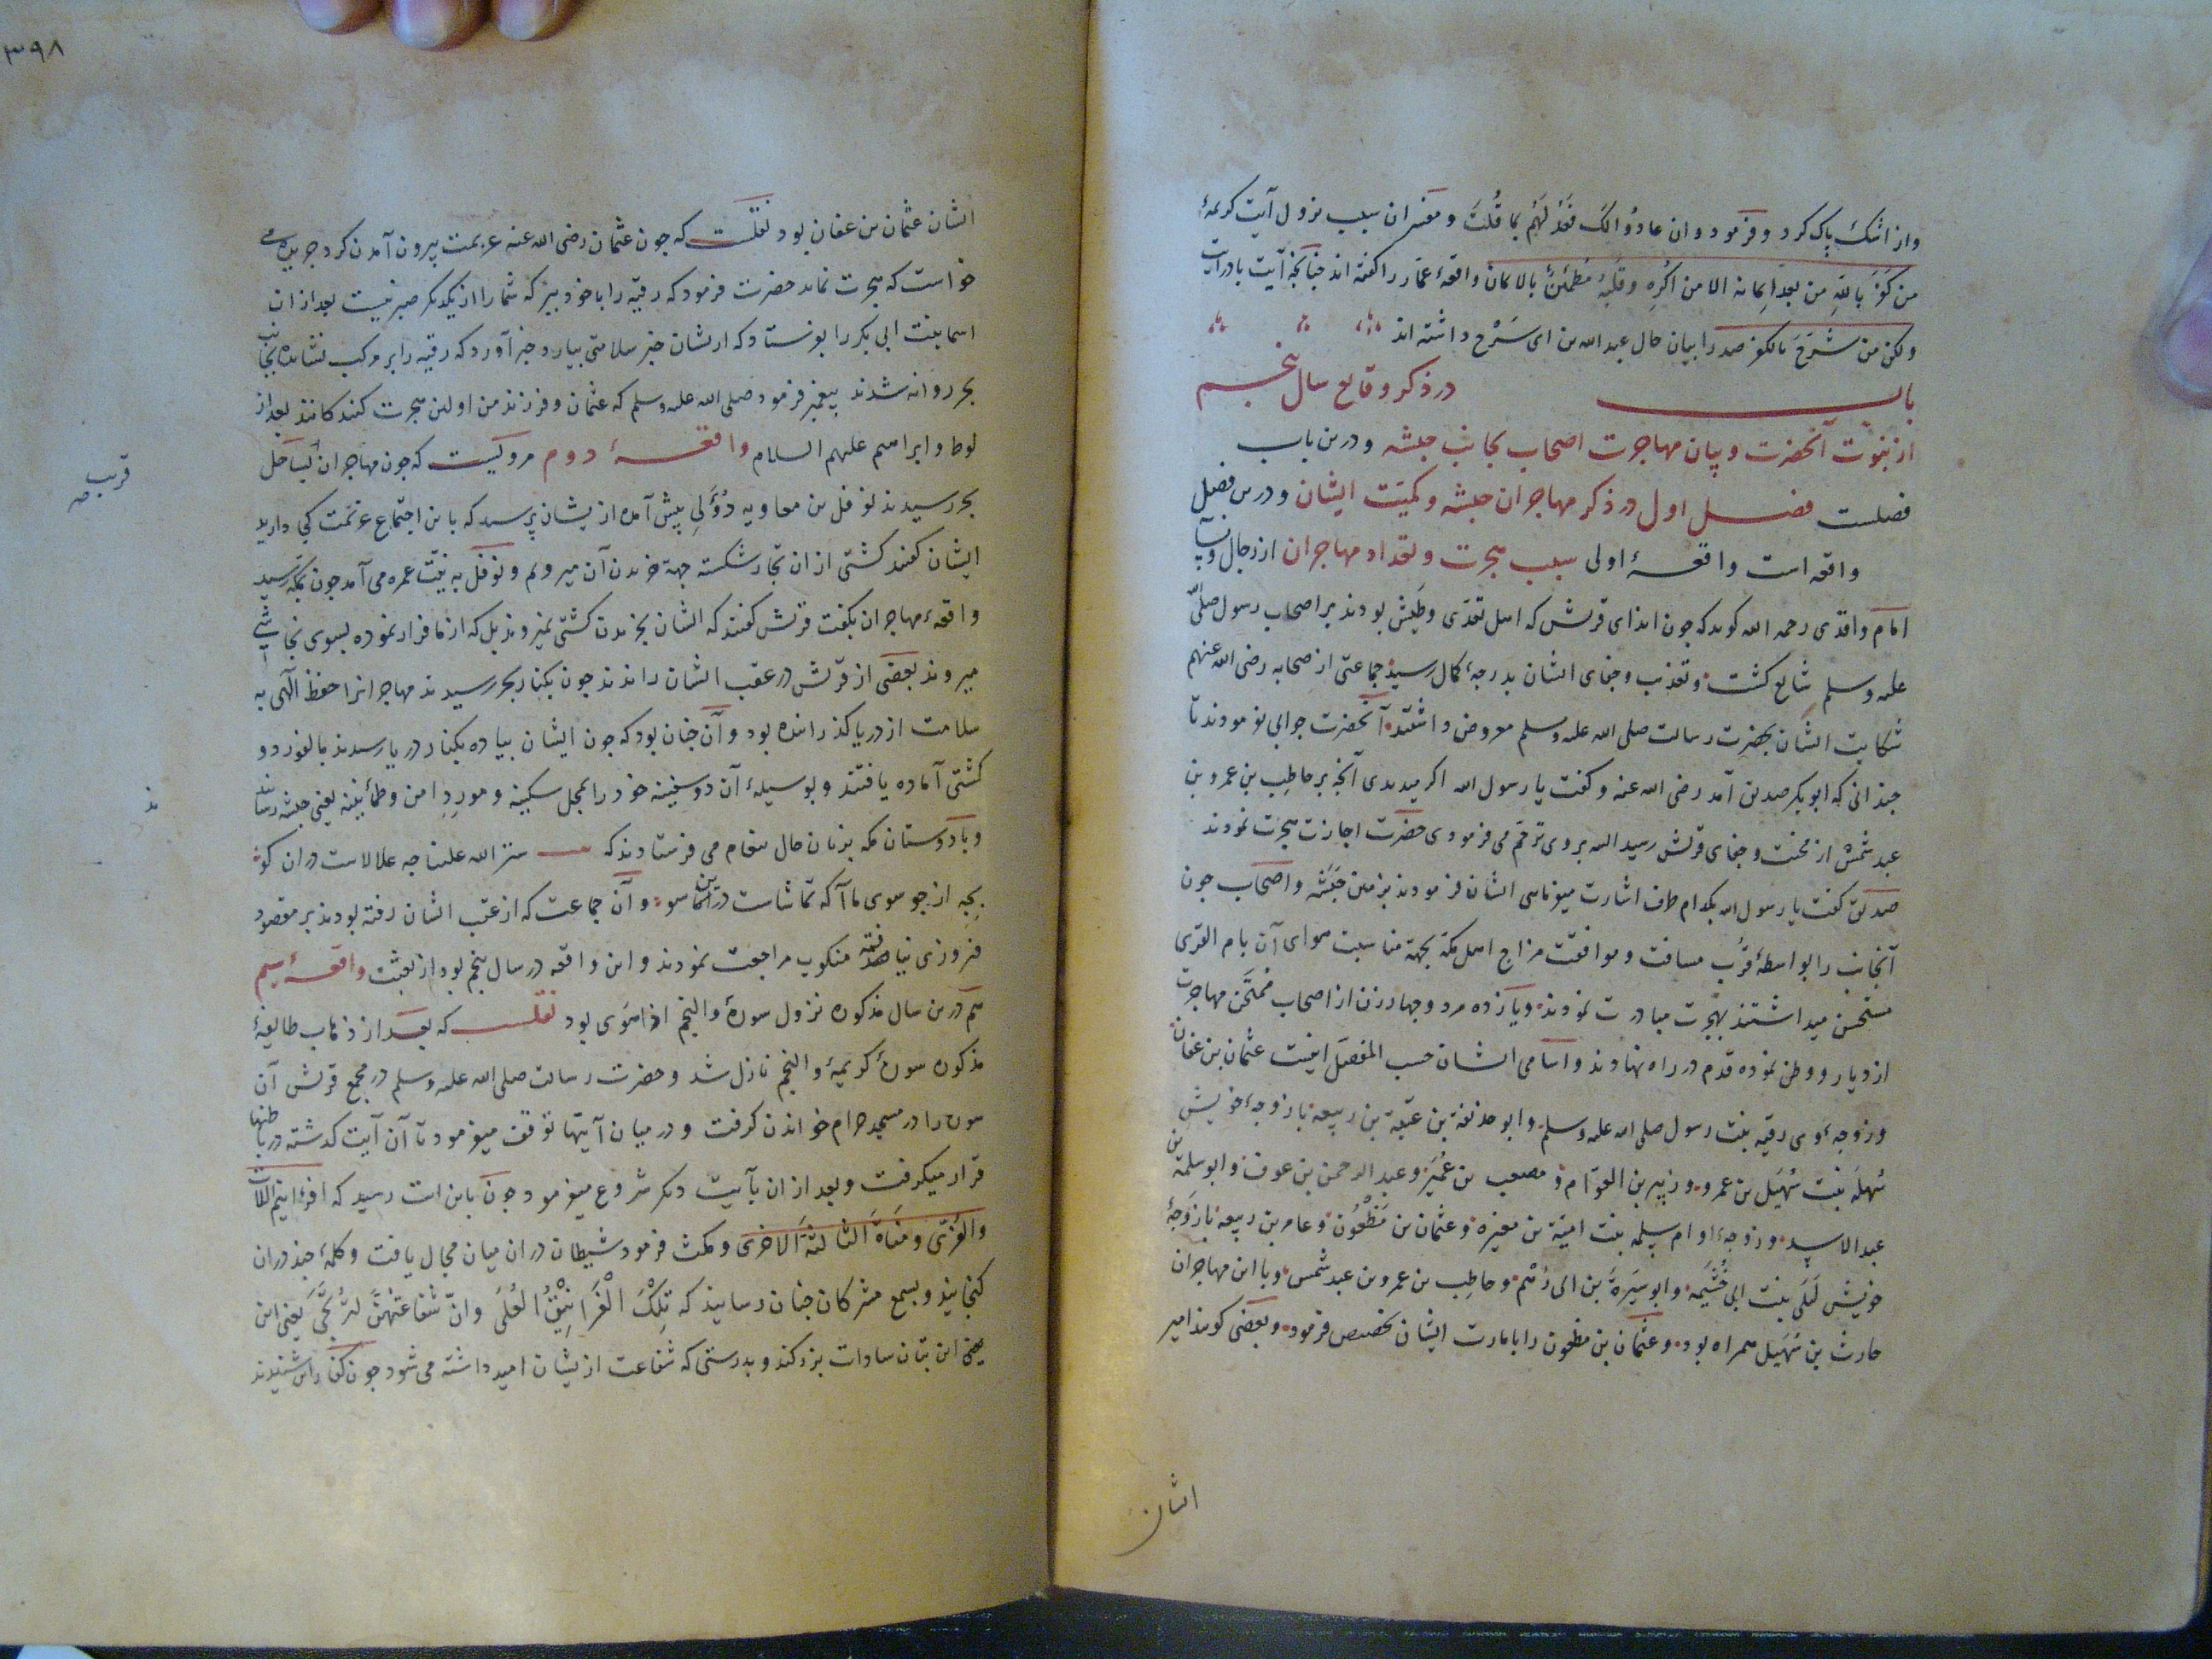 واز اشک پاک کرد و فرمود و ان عادوا لک فعد لهم بما قلت و مفسران سبب نزول آیت کریمهٔ
من کفر بالله من بعد ایمانه الا من اکره و قلبه مطمئن بالایمان واقعهٔ عمار را کفته اند چنانچه آیت
ولکن من شرح بالکفر صدرا بیان حال عبدالله بن ابی سرح داشته اند
باب در ذکر وقایع سال پنجم
از نبوت آنحضرت و بیان مهاجرت اصحاب بجانب حبشه و درین باب
فصلست فصل اول در ذکر مهاجران حبشه و کمیّت ایشان و درین فصل
واقعه است واقعهٔ اولی سبب هجرت و تعداد مهاجران از رجال و نسا
امام واقدی رحمه الله کوید که چون ایذای قریش که اهل تعدّی و طیش بودند بر اصحاب رسول صلی الله
علیه وسلم شایع کشت و تعذیب و جفای ایشان بدرجهٔ کمال رسید جماعتی از صحابه رضی الله عنهم
شکایت ایشان بحضرت رسالت صلی الله علیه وسلم معروض داشتند آنحضرت جوابی نفرمودند تا
چندانی که ابوبکر صدیق آمد رضی الله عنه و کفت یا رسول الله اکر میدیدی آنچه بر حاطب بن عمرو بن
عبد شمس از محنت و جفای قریش رسید البته بروی ترحّم می فرمودی حضرت اجازت هجرت نمودند
صدیق کفت یا رسول الله بکدام طرف اشارت میفرمایی ایشان فرمودند بزمین حبشه و اصحاب چون
آنجانب را بواسطهٔ قرب مسافت و موافقت مزاج اهل مکه بجهة مناسبت هوای آن بام القری
مستحسن میداشتند بهجرت مبادرت نمودند و یازده مرد و چهار زن از اصحاب ممتحن مهاجرت
از دیار و وطن نموده قدم در راه نهادند و اسامی ایشان حسب المفصل اینست عثمان بن عفان
و زوجهٔ وی رقیه بنت رسول صلی الله علیه وسلم و ابو حذیفة بن عتبة بن ربیعه با زوجهٔ خویش
سهله بنت سهیل بن عمرو و زبیر بن العوّام و مصعب بن عمیر و عبد الرحمن بن عوف و ابو سلمة بن
عبد الاسد و زوجهٔ او ام سلمه بنت امیّة بن مغیره و عثمان بن مظعون و عامر بن ربیعه با زوجهٔ
خویش لیلی بنت ابی خثیمه و ابو سبرة بن ابی رهم و حاطب بن عمرو بن عبد شمس و با این مهاجران
حارث بن سهیل همراه بود و عثمان بن مظعون را بامارت ایشان تخصیص فرمود و بعضی کویند امیر
ایشان
۳۹۸
ایشان عثمان بن عفان بود نقلست که چون عثمان رضی الله عنه عزیمت بیرون آمدن کرد جریده می
خواست که هجرت نماید حضرت فرمود که رقیه را با خود ببر که شما را از یکدیکر صبر نیست بعد از ان
اسما بنت ابی بکر را بفرستاد که از یشان خبر سلامتی بیارد خبر آورد که رقیه را بر مرکب نشانده بجانب
بحر روانه شدند پیغمبر فرمود صلی الله علیه وسلم که عثمان و فرزند من اولین هجرت کنند کانند بعد از
لوط و ابراهیم علیهم السلام واقعهٔ دوم مرویست که چون مهاجران بساحل
بحر رسیدند نوفل بن معاویه دؤلی پیش آمده از یشان پرسید که با این اجتماع عزیمت کجا دارید
ایشان کفتند کشتی از ان تجار شکسته جهة خریدن آن میرویم و نوفل به نیّت عمره می آمد چون بمکه رسید
واقعهٔ مهاجران بکفت قریش کفتند که ایشان بخریدن کشتی نمیروند بل که از ما فرار نموده بسوی نجاشی
میروند بعضی از قریش در عقب ایشان راندند چون بکنار بحر رسیدند مهاجرانرا حفظ الهی به
سلامت از دریا کذرانیده بود و آن چنان بود که چون ایشان پیاده بکنار دریا رسیدند بالفور دو
کشتی آماده یافتند و بوسیلهٔ آن دو سفینه خود را بمحل سکینه و مورد امن و طمأنینه یعنی حبشه رسانیدند
و با دوستان مکه بزبان حال پیغام می فرستادند که
و آن جماعت که از عقب ایشان رفته بودند بر مقصود
فیروزی نیافته منکوب مراجعت نمودند و این واقعه در سال پنجم بود از بعثت واقعهٔ سیم
هم درین سال مذکوره نزول سورهٔ والنجم اذا هوی بود نقلست که بعد از ذهاب طایفهٔ
مذکوره سورهٔ کریمهٔ والنجم نازل شد و حضرت رسالت صلی الله علیه وسلم در مجمع قریش آن
سوره را در مسجد حرام خواندن کرفت و در میان آیتها توقف میفرمود تا آن آیت کذشته در باطنها
قرار میکرفت و بعد از ان بآیت دیکر شروع میفرمود چون باین ایت رسید که افرایتم اللات
والعزّی ومناة الثالثة الاخری و مکث فرمود شیطان در ان میان مجال یافت و کلمهٔ چند در ان
کنجانید و بسمع مشرکان چنان رسانید که تلک الغرانیق العلی وانّ شفاعتهنّ لترتجی یعنی این
یعنی این بتان سادات بزرکند و بدرستی که شفاعت از یشان امید داشته می شود چون کفار این شنیدند
قریب